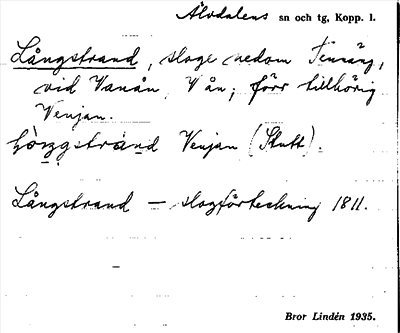 Älvdalens sn och tg, Kopp. l.
Långstrand, sloge nedom Tennäng,
vid Vanån, V ån; förr tillhörig
Venjan.
Venjan (Stutt).
Långstrand — slogförteckning 1811.
Bror Lindén 1935.